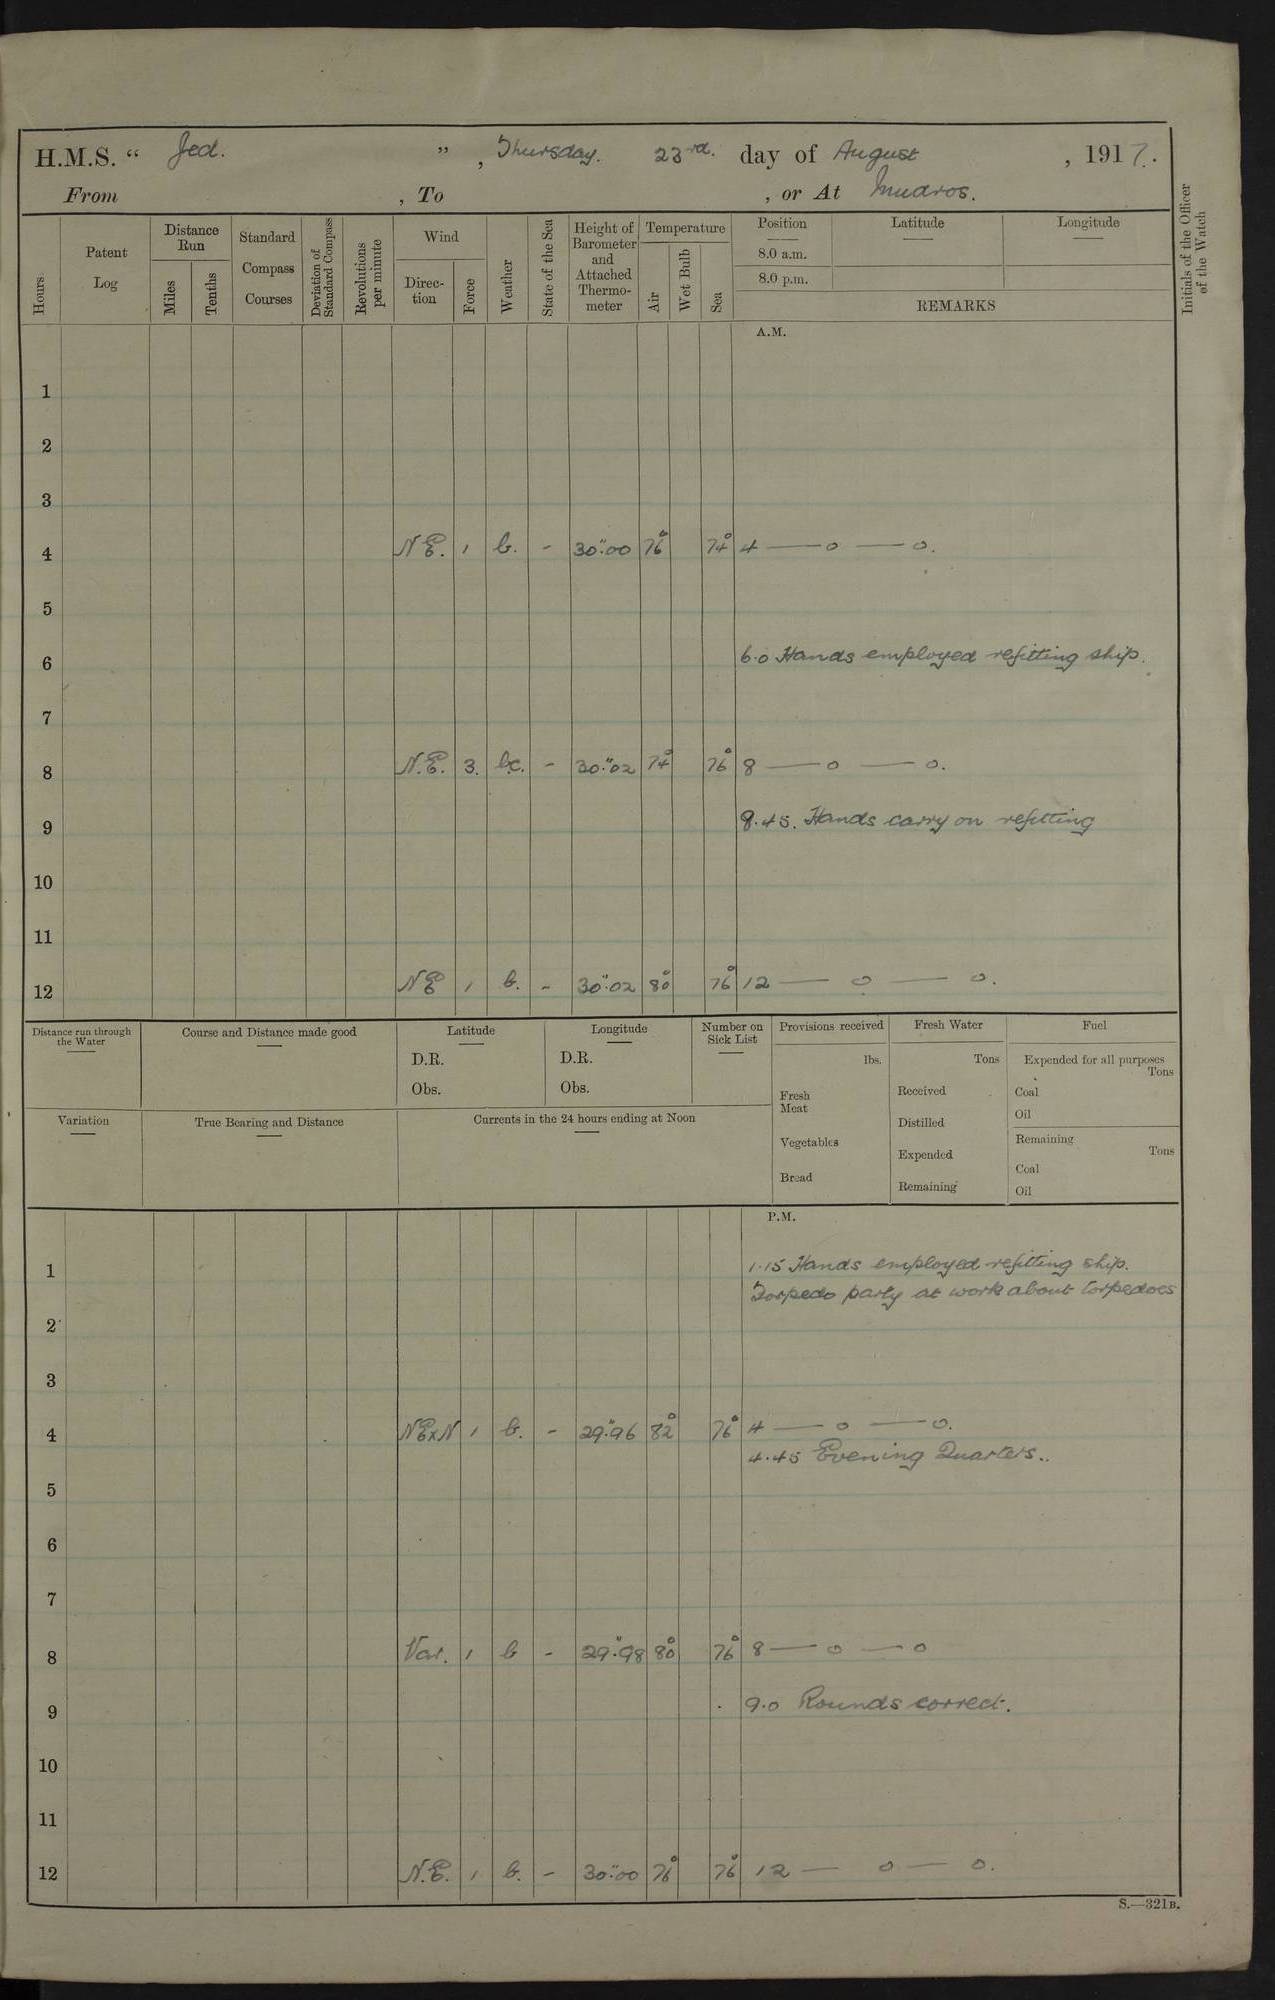 H.M.S. “ Jed. ” , Thursday. 23rd. day of August , 1917.
From , To , or At Mudros.
Hours
Patent Log
Distance Run
Miles
Tenths
Standard Compass Courses
Deviation of Standard Compass
Revolutions per minute
Wind
Direc-tion
Force
Weather
State of the Sea
Height of Barometer and Attached Thermo-meter
Temperature
Air
Wet Bulb
Sea
Position Latitude Longitude
8.0 a.m.
8.0 p.m.
REMARKS
Initials of the Officer of the Watch
A.M.
1
2
3
4 N E. 1 b. - 30".00 76° 74° 4 — o — o.
5
6 6.0 Hands employed refitting ship.
7
8 N.E. 3. b.c. - 30."02 74° 76° 8 — o — o.
9 8.45. Hands carry on refitting
10
11
12 N E 1 b. - 30".02 80° 76° 12 — o — o.
Distance run through the Water
Course and Distance made good
Latitude
D.R.
Obs.
Longitude
D.R.
Obs.
Number on Sick List
Provisions received
lbs.
Fresh Meat
Vegetables
Bread
Fresh Water
Tons
Received
Distilled
Expended
Remaining
Fuel
Expended for all purposes
Tons
Coal
Oil
Remaining
Tons
Coal
Oil
Variation
True Bearing and Distance
Currents in the 24 hours ending at Noon
P.M.
1 1.15 Hands employed refitting ship.
Torpedo party at work about torpedoes
2
3
4 NExN 1 b. - 29".96 82° 76° 4 — o — o.
4.45 Evening Quarters..
5
6
7
8 Var. 1 b - 29".98 80° 76° 8 — o — o
9 9.0 Rounds correct.
10
11
12 N.E. 1 b. - 30".00 76° 76° 12 — o — o.
S.—321B.